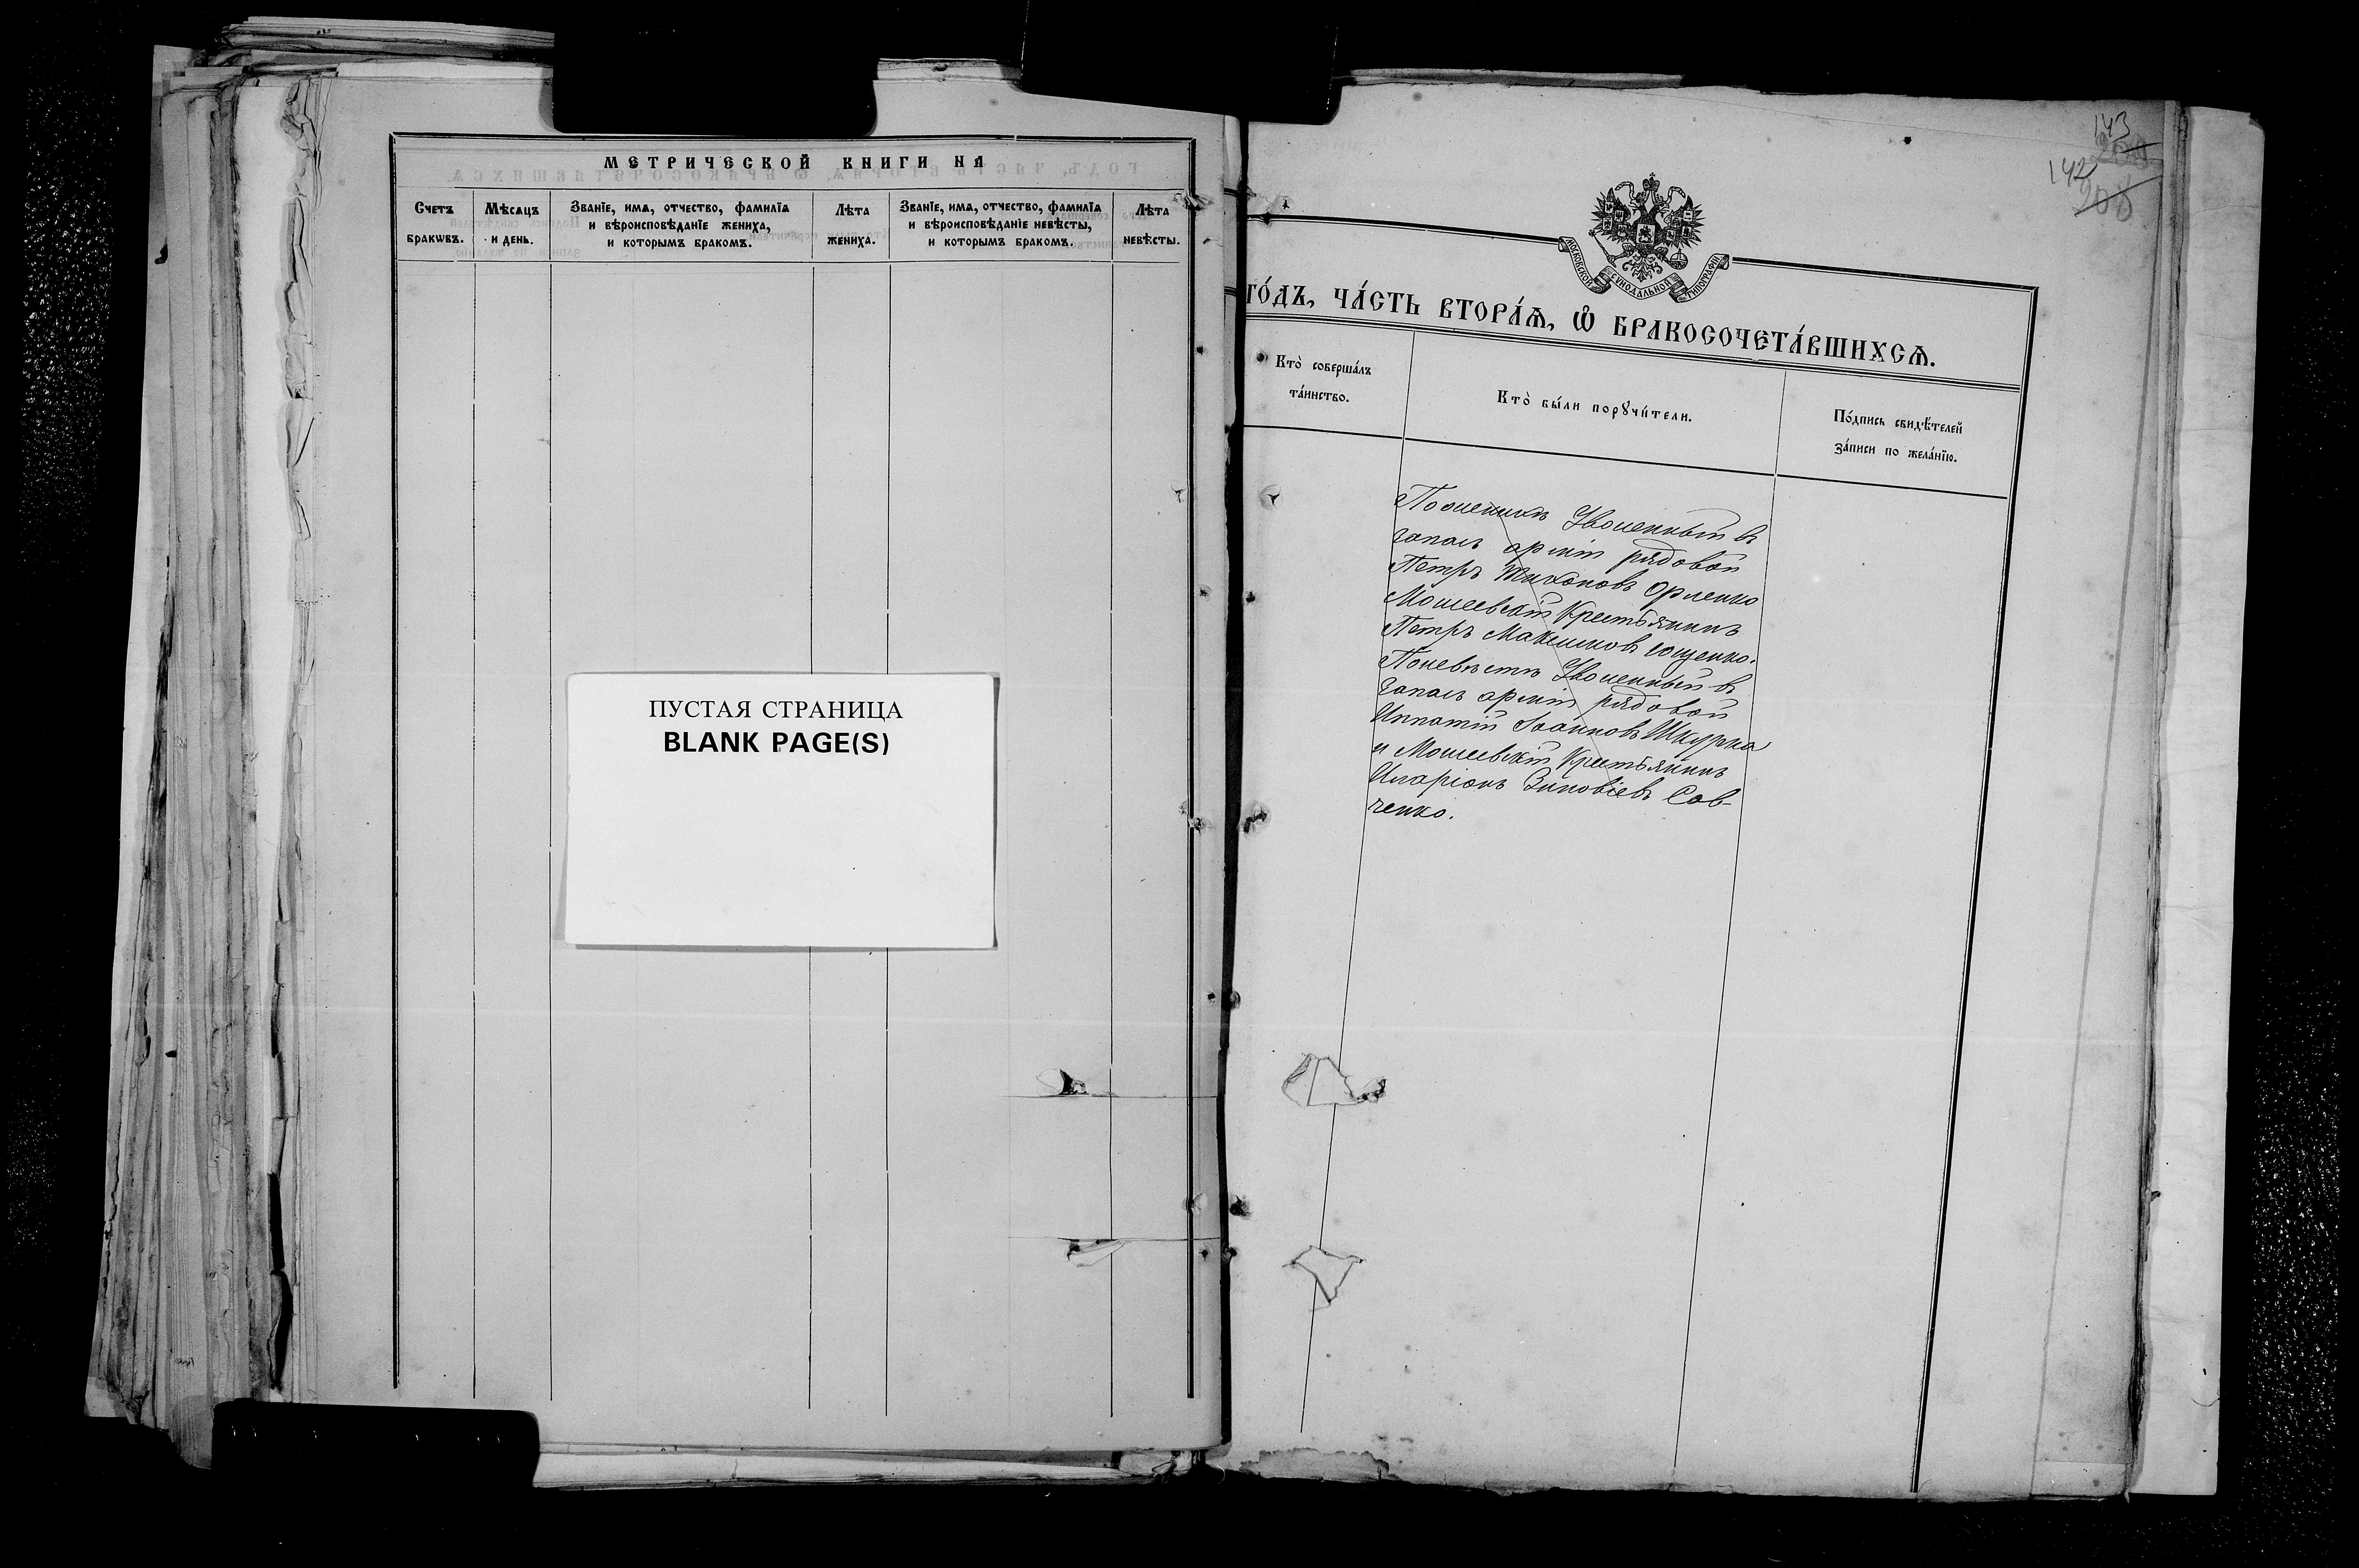 МЕТРИЧЕСКОЙ КНИГИ НА
Счетъ
бракѡвъ.
Мѣсяцъ
и день.
Званїе, имѧ, отчество, фамилїѧ
и вѣроисповѣданїе жениха,
и которымъ бракомъ.
Лѣта
жениха.
Званїе, имѧ, отчество, фамилїѧ
и вѣроисповѣданїе невѣсты,
и которымъ бракомъ.
Лѣта
невѣсты.
ПУСТАЯ СТРАНИЦА
BLANK PAGE(S)
143
142
208
МОСКОВСКОЙ СѴНОДАЛЬНОЙ ТИПОГРАФІИ
ГО́ДЪ, ЧА́СТЬ ВТОРА́Ѧ, Ѡ҆ БРАКОСОЧЕТА́ВШИХСѦ.
Кто̀ соверша́лъ
та́инство.
Кто̀ бы́ли порꙋчи́тели.
По́дпись свидѣ́телей
за́писи по жела́нїю.
По женихѣ Уволенный въ
запасъ арміи рядовой
Петръ Тихоновъ Орленко
Мошеевскій Крестьянинъ
Петръ Максимовъ Ющенко.
По невѣстѣ Уволенный въ
запасъ арміи рядовой
Ипатій Іоанновъ Шкурка
и Мошеевскій Крестьянинъ
Иларіонъ Зиновіевъ Сав-
ченко.